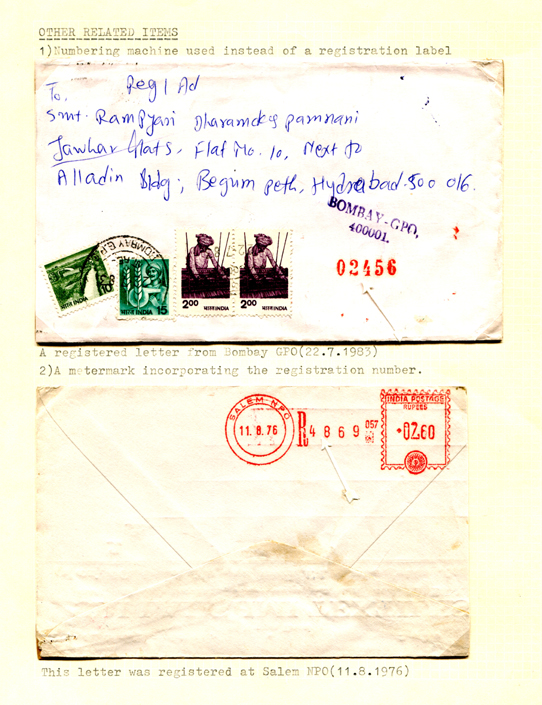 OTHER RELATED ITEMS
1)Numbering machine used instead of a registration label
Reg | Ad
To,
Smt. Rampyari Dharamdas Pamnani
Jawhar Flats, Flat No. 10, Next to
Alladin Bldg; Begum peth, Hydrabad-500 016.
BOMBAY-GPO,
400001.
02456
BOMBAY G.P.O.
भारत INDIA
भारत INDIA 15
2.00 भारत INDIA
2.00 भारत INDIA
A registered letter from Bombay GPO(22.7.1983)
2)A metermark incorporating the registration number.
SALEM-NPO
11.8.76
R 4869
057
INDIA POSTAGE
RUPEES
02.60
This letter was registered at Salem NPO(11.8.1976)